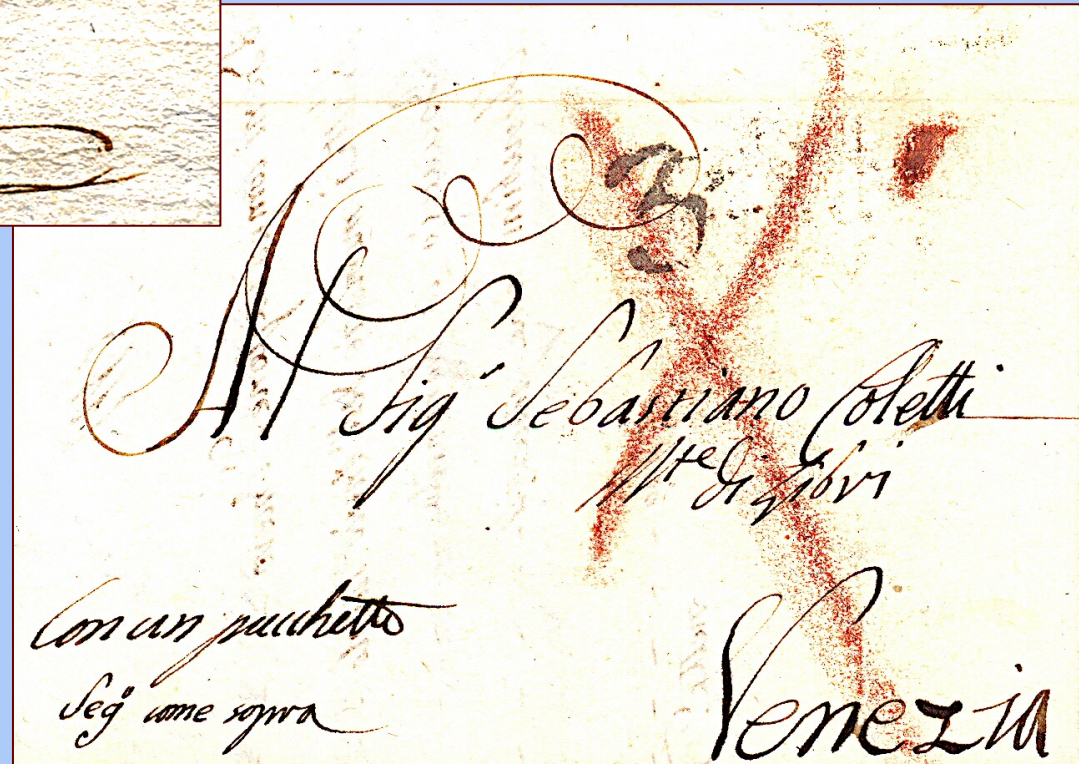 Al Sig.r Sebastiano Coletti
di
Con un pacchetto
Seg.o come sopra
Venezia